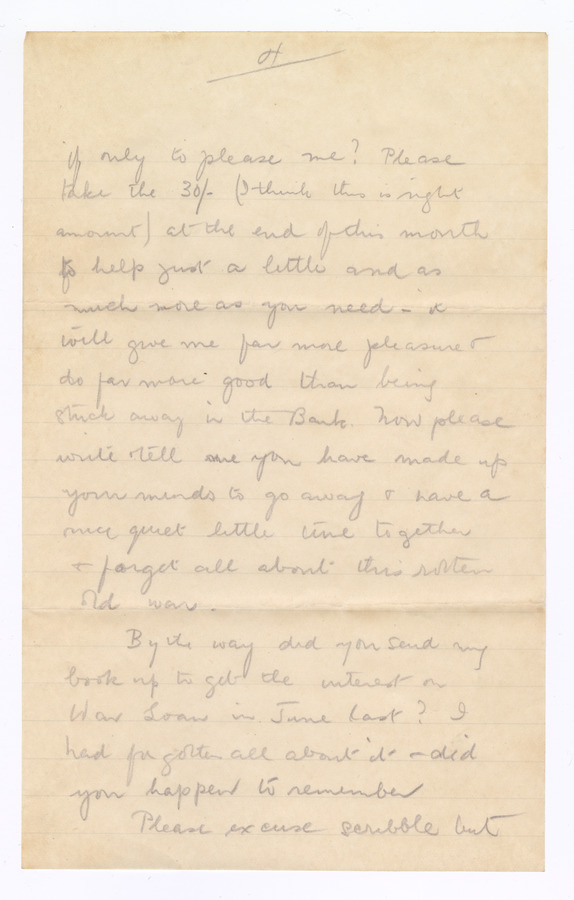 4
if only to please me? Please
take the 30/- (I think this is right
amount) at the end of this month
to help just a little and as
much more as you need - it
will give me far more pleasure &
do far more good than being
stuck away in the Bank. Now please
write & tell me you have made up
your minds to go away & have a
nice quiet little time together
& forget all about this rotten
old war.
By the way did you send my
book up to get the interest on
War Loan in June last? I
had forgotten all about it - did
you happen to remember
Please excuse scribble but